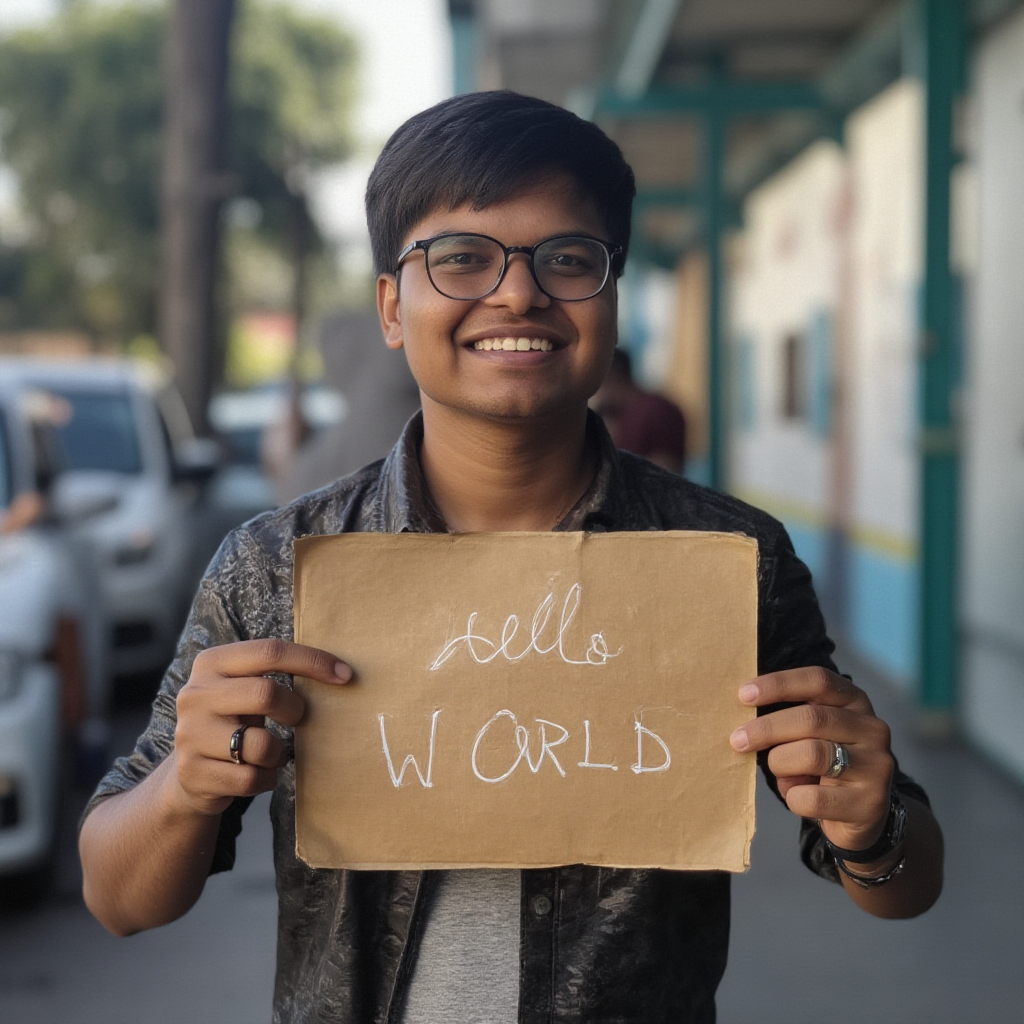 Hello
WORLD